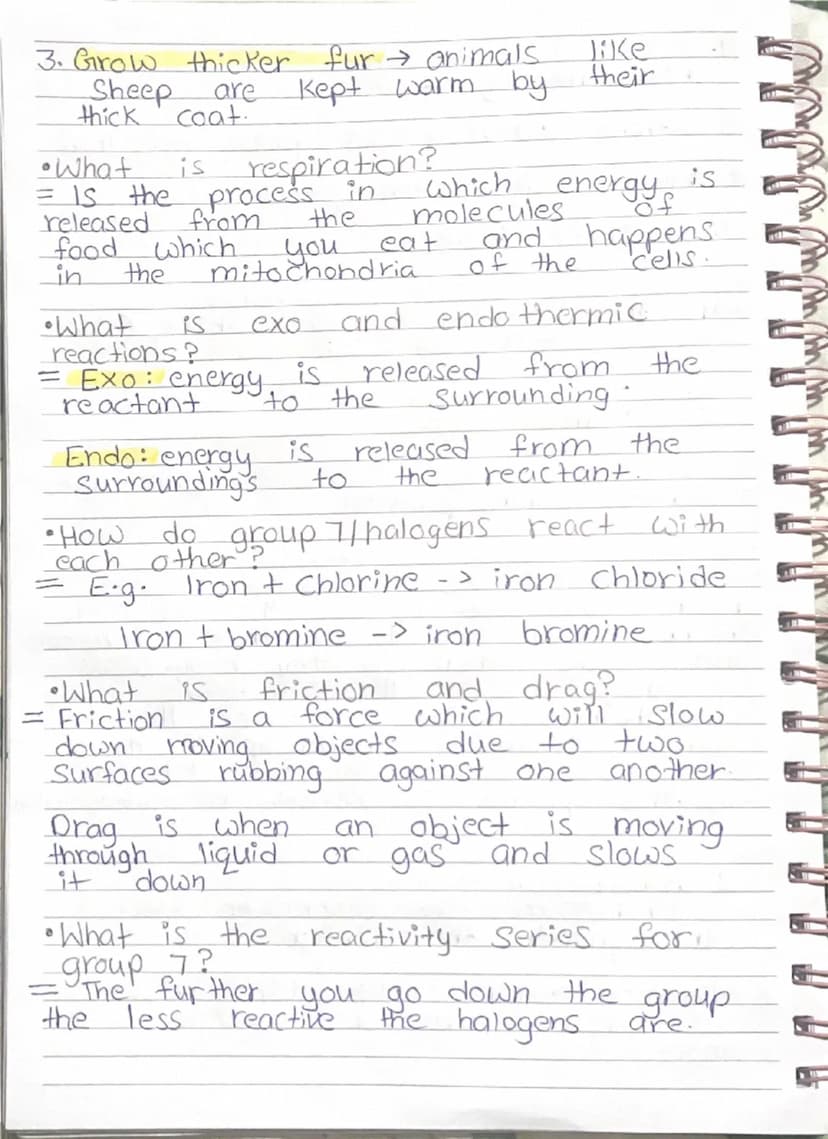 3. Grow thicker fur → animals like
Sheep are kept warm by their
thick coat.
•What is respiration?
= Is the process in which energy is
released from the molecules of
food which you eat and happens
in the mitochondria of the cells.
•What is exo and endothermic
reactions?
= Exo: energy is released from the
reactant to the surrounding.
Endo: energy is released from the
surroundings to the reactant.
•How do group 7/halogens react with
each other?
= E.g. Iron + Chlorine -> iron chloride
Iron + bromine -> iron bromine
•What is friction and drag?
= Friction is a force which will slow
down moving objects due to two
surfaces rubbing against one another.
Drag is when an object is moving
through liquid or gas and slows
it down
•What is the reactivity series for
group 7?
= The further you go down the group
the less reactive the halogens are.